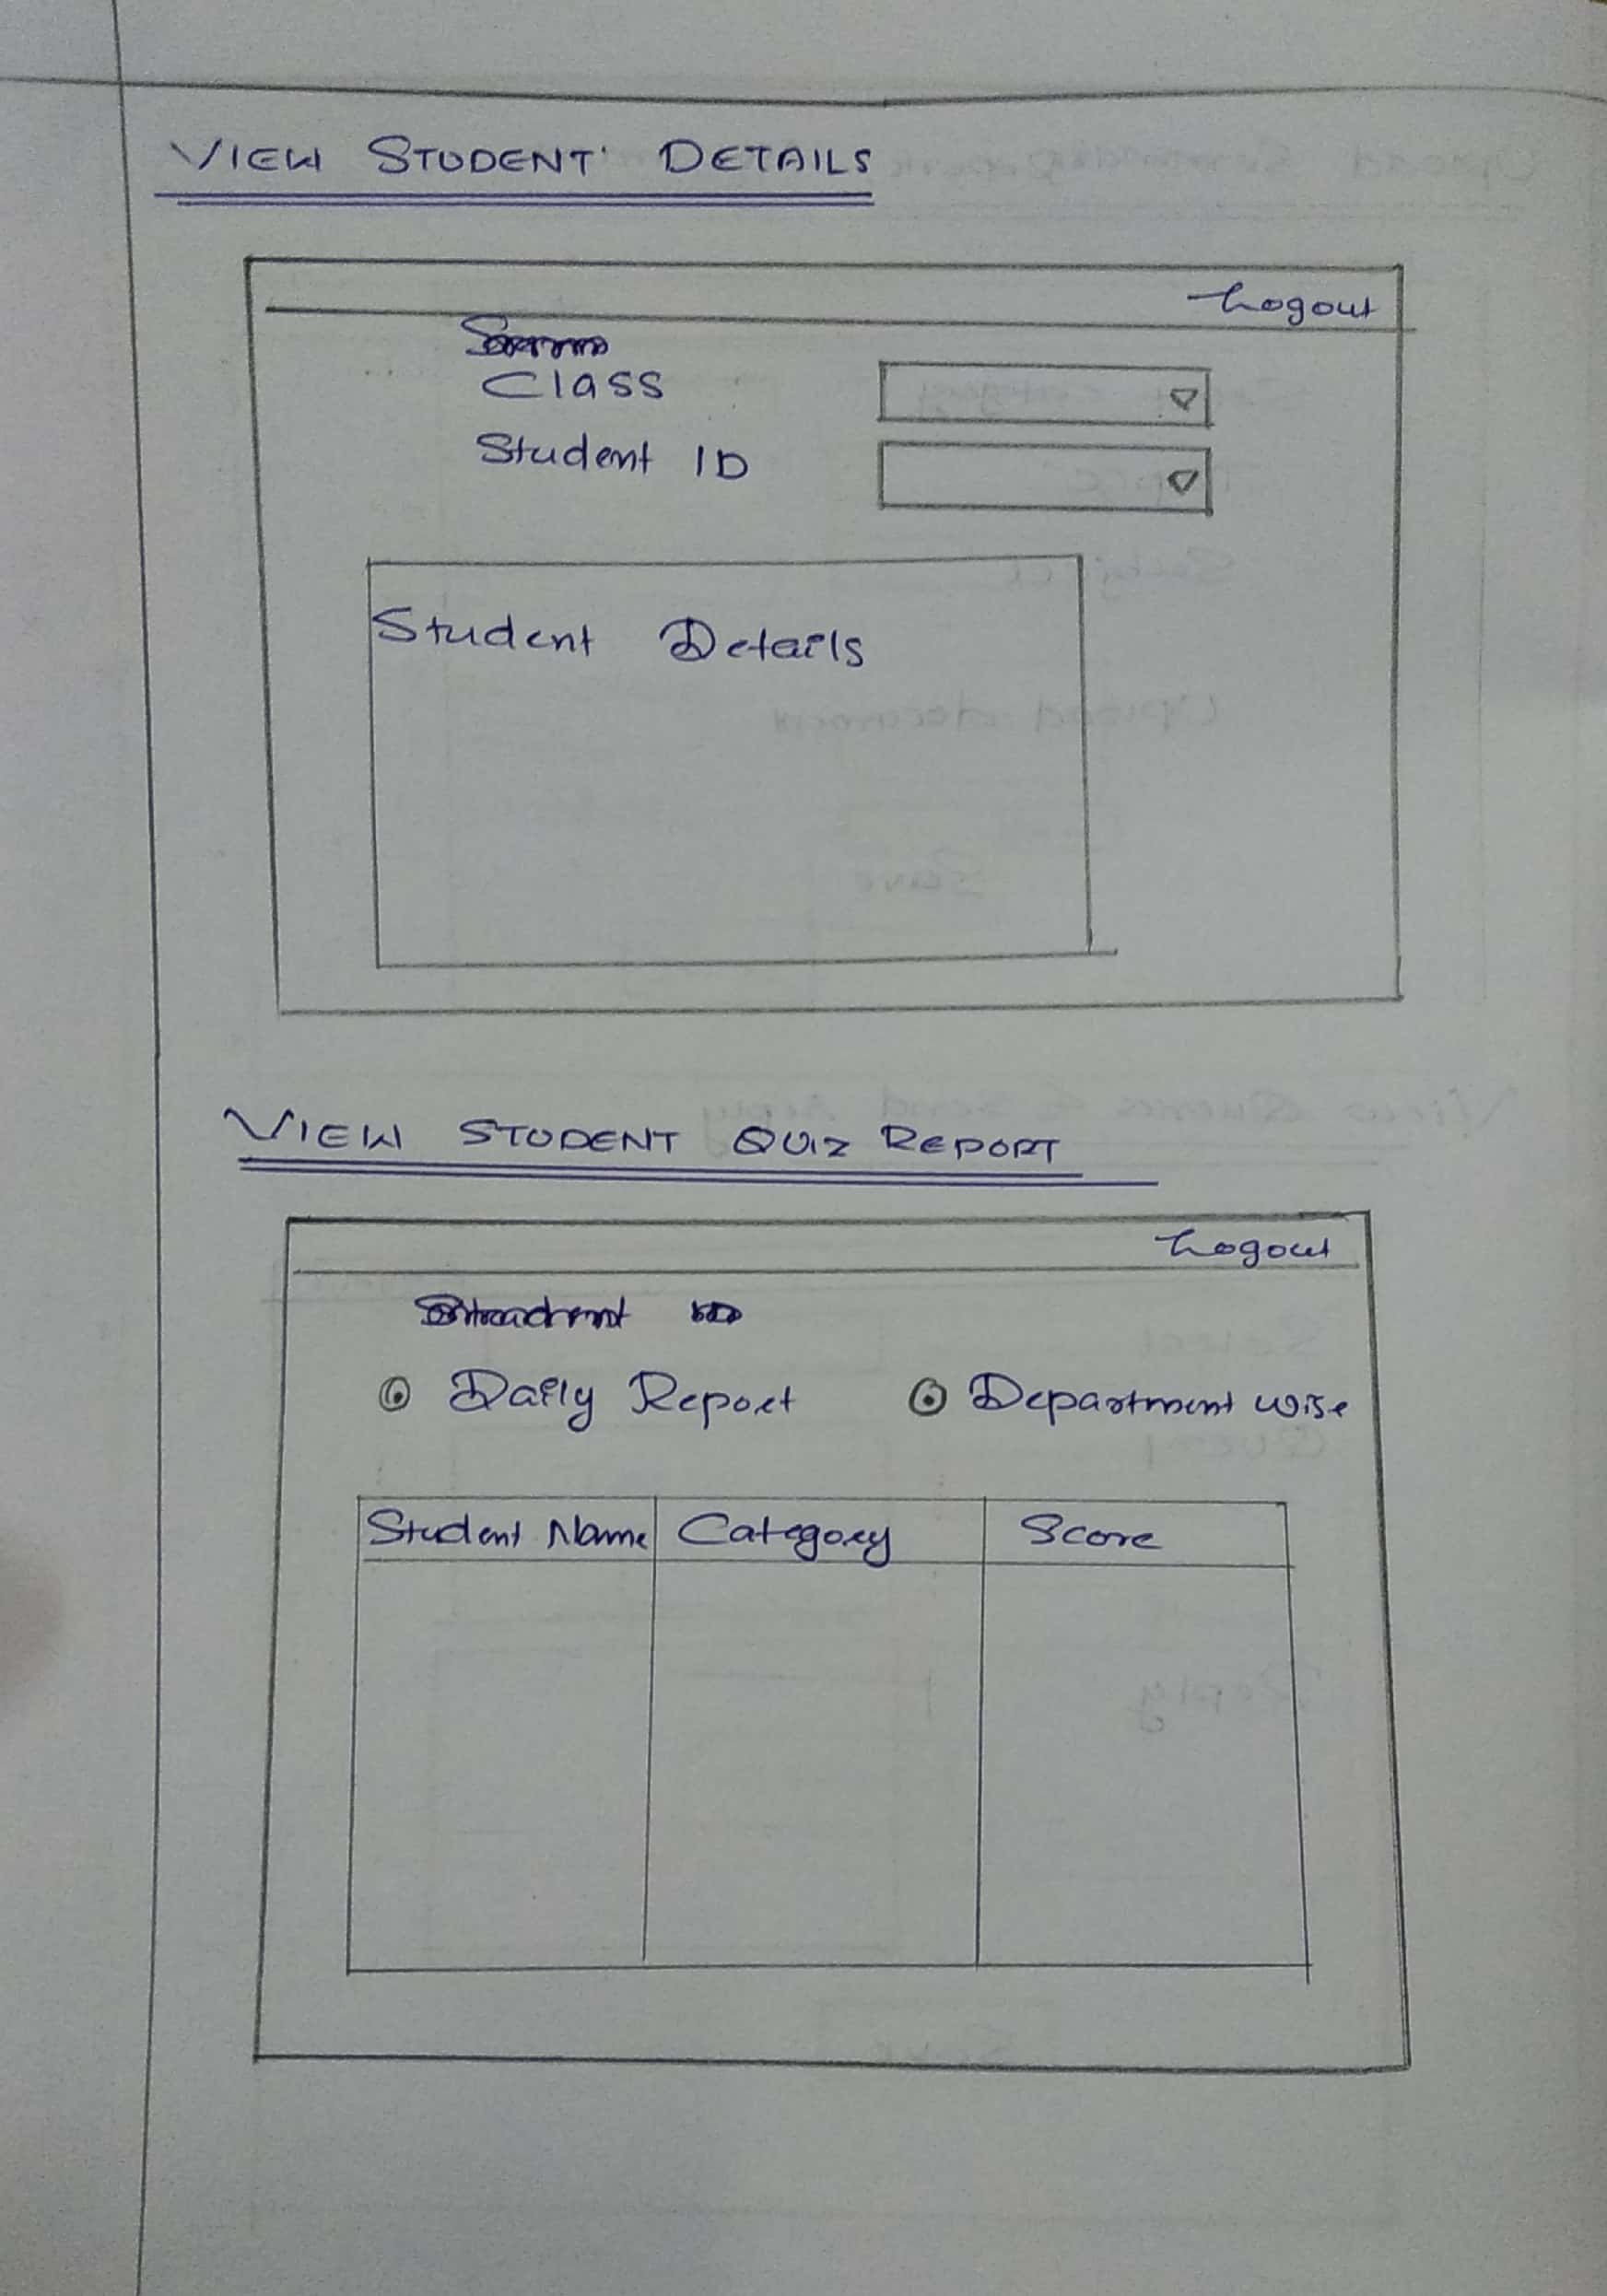 VIEW STUDENT DETAILS
Logout
Class
Student ID
Student Details
VIEW STUDENT QUIZ REPORT
Logout
Daily Report Department wise
Student Name Category Score